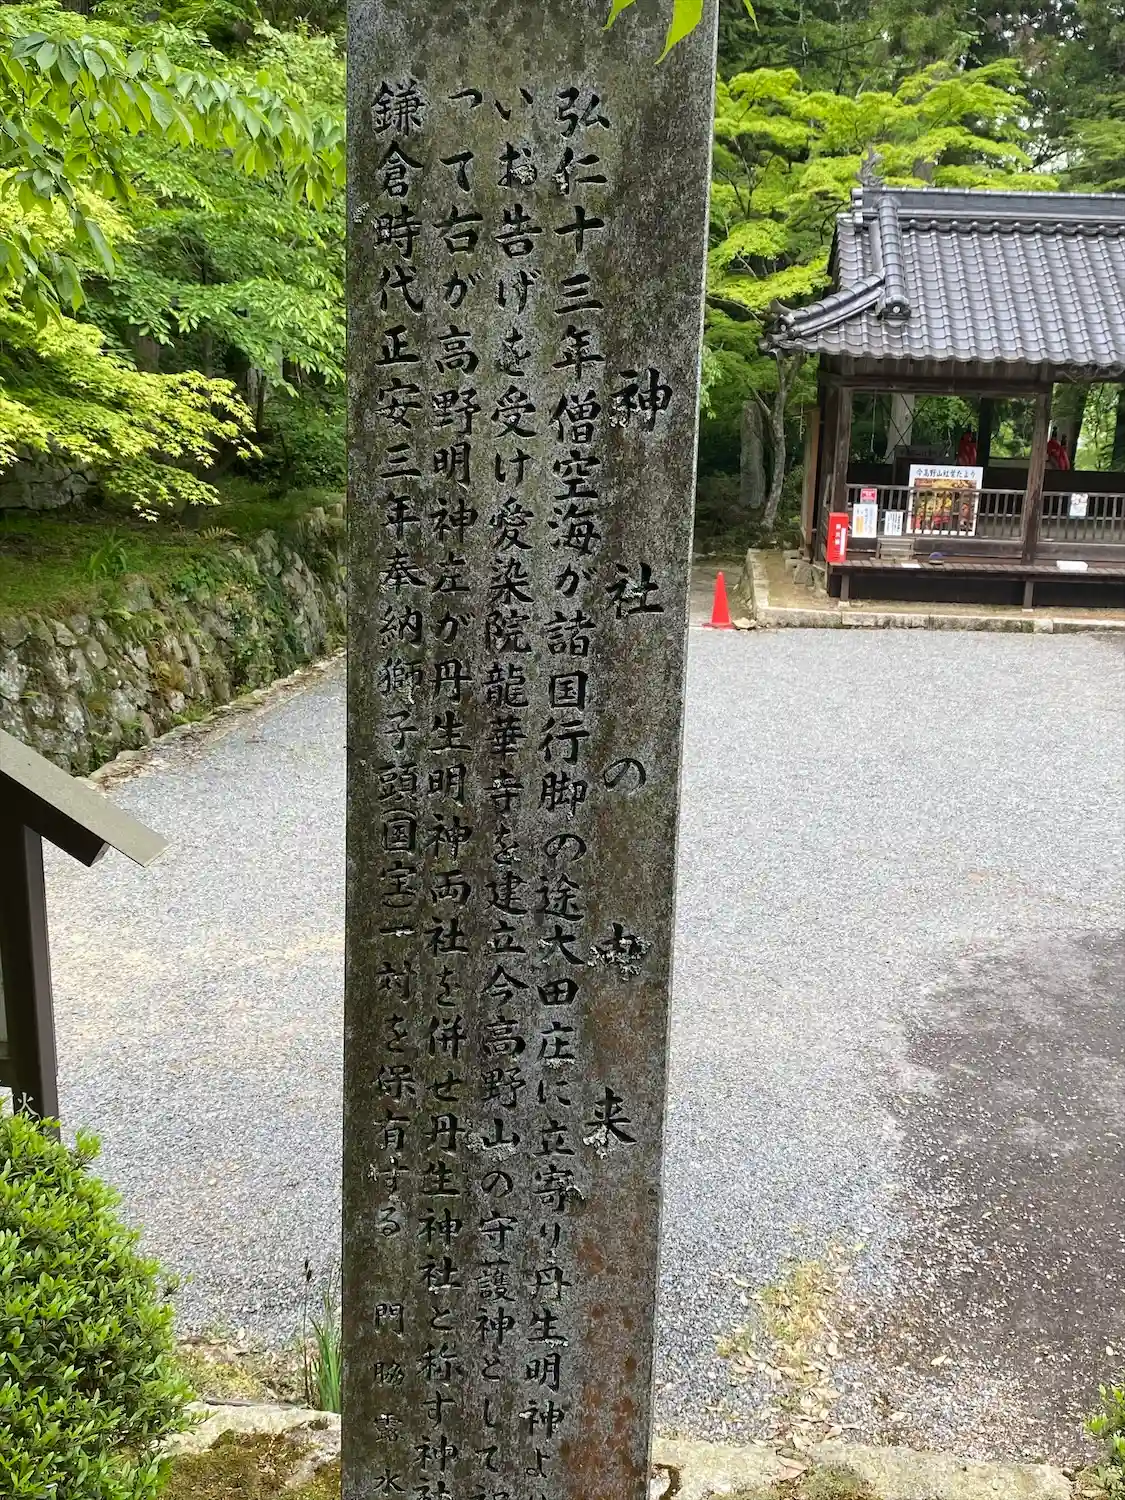 神社の由来
弘仁十三年僧空海が諸国行脚の途大田庄に立寄り丹生明神よ
いお告げを受け愛染院龍華寺を建立今高野山の守護神として
って右が高野明神左が丹生明神両社を併せ丹生神社と称す神
鎌倉時代正安三年奉納獅子頭(国宝)一対を保有する 門脇 水
今高野山社堂だより